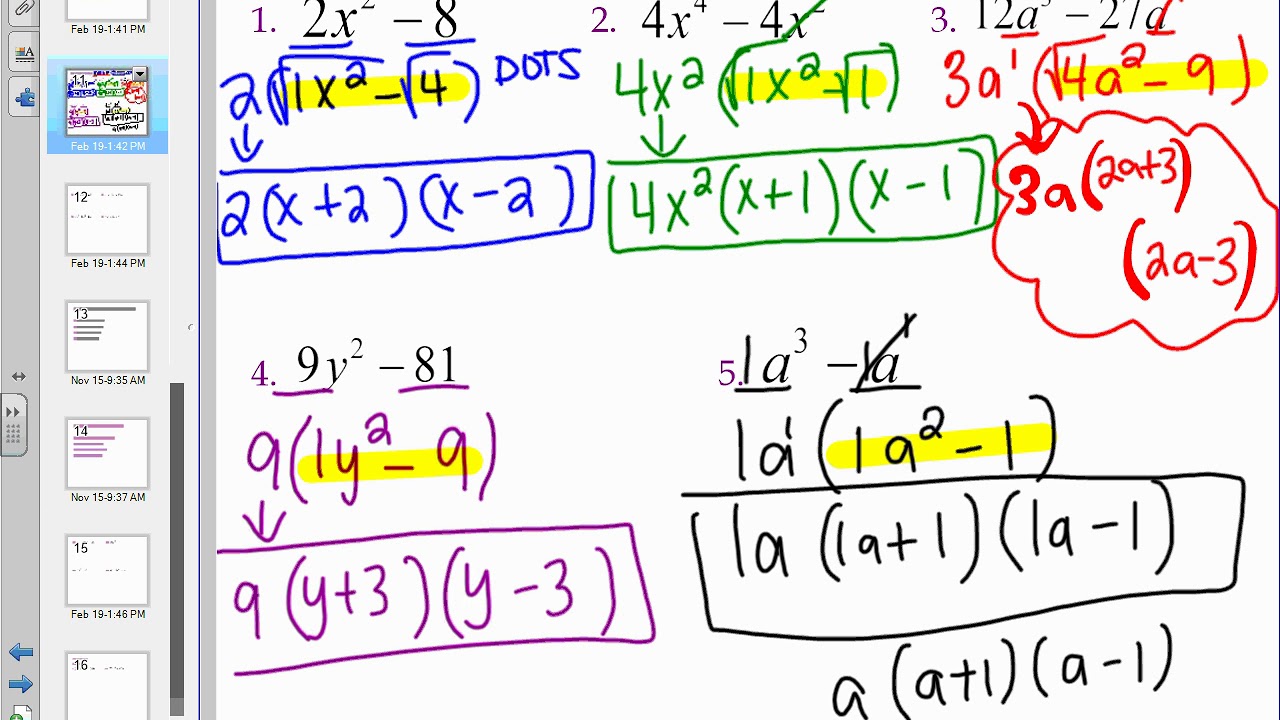 Feb 19-1:41 PM
11
Feb 19-1:42 PM
12
Feb 19-1:44 PM
13
Nov 15-9:35 AM
14
Nov 15-9:37 AM
15
Feb 19-1:46 PM
16
1. 2x² − 8
2(√1x² − √4) DOTS
2(x+2)(x−2)
2. 4x⁴ − 4x²
4x²(√1x² − √1)
4x²(x+1)(x−1)
3. 12a³ − 27a
3a¹(√4a² − 9)
3a(2a+3)
(2a−3)
4. 9y² − 81
9(1y² − 9)
9(y+3)(y−3)
5. 1a³ − 1a¹
1a¹(1a² − 1)
1a(1a+1)(1a−1)
a(a+1)(a−1)